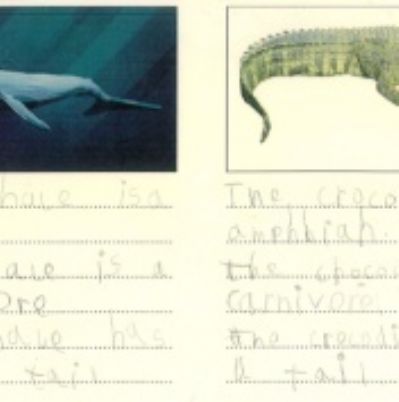 hale is a
ale is a
ore
hale has
tail
The croco
amphbiah.
the croco
carnivore
the crocodi
a tail